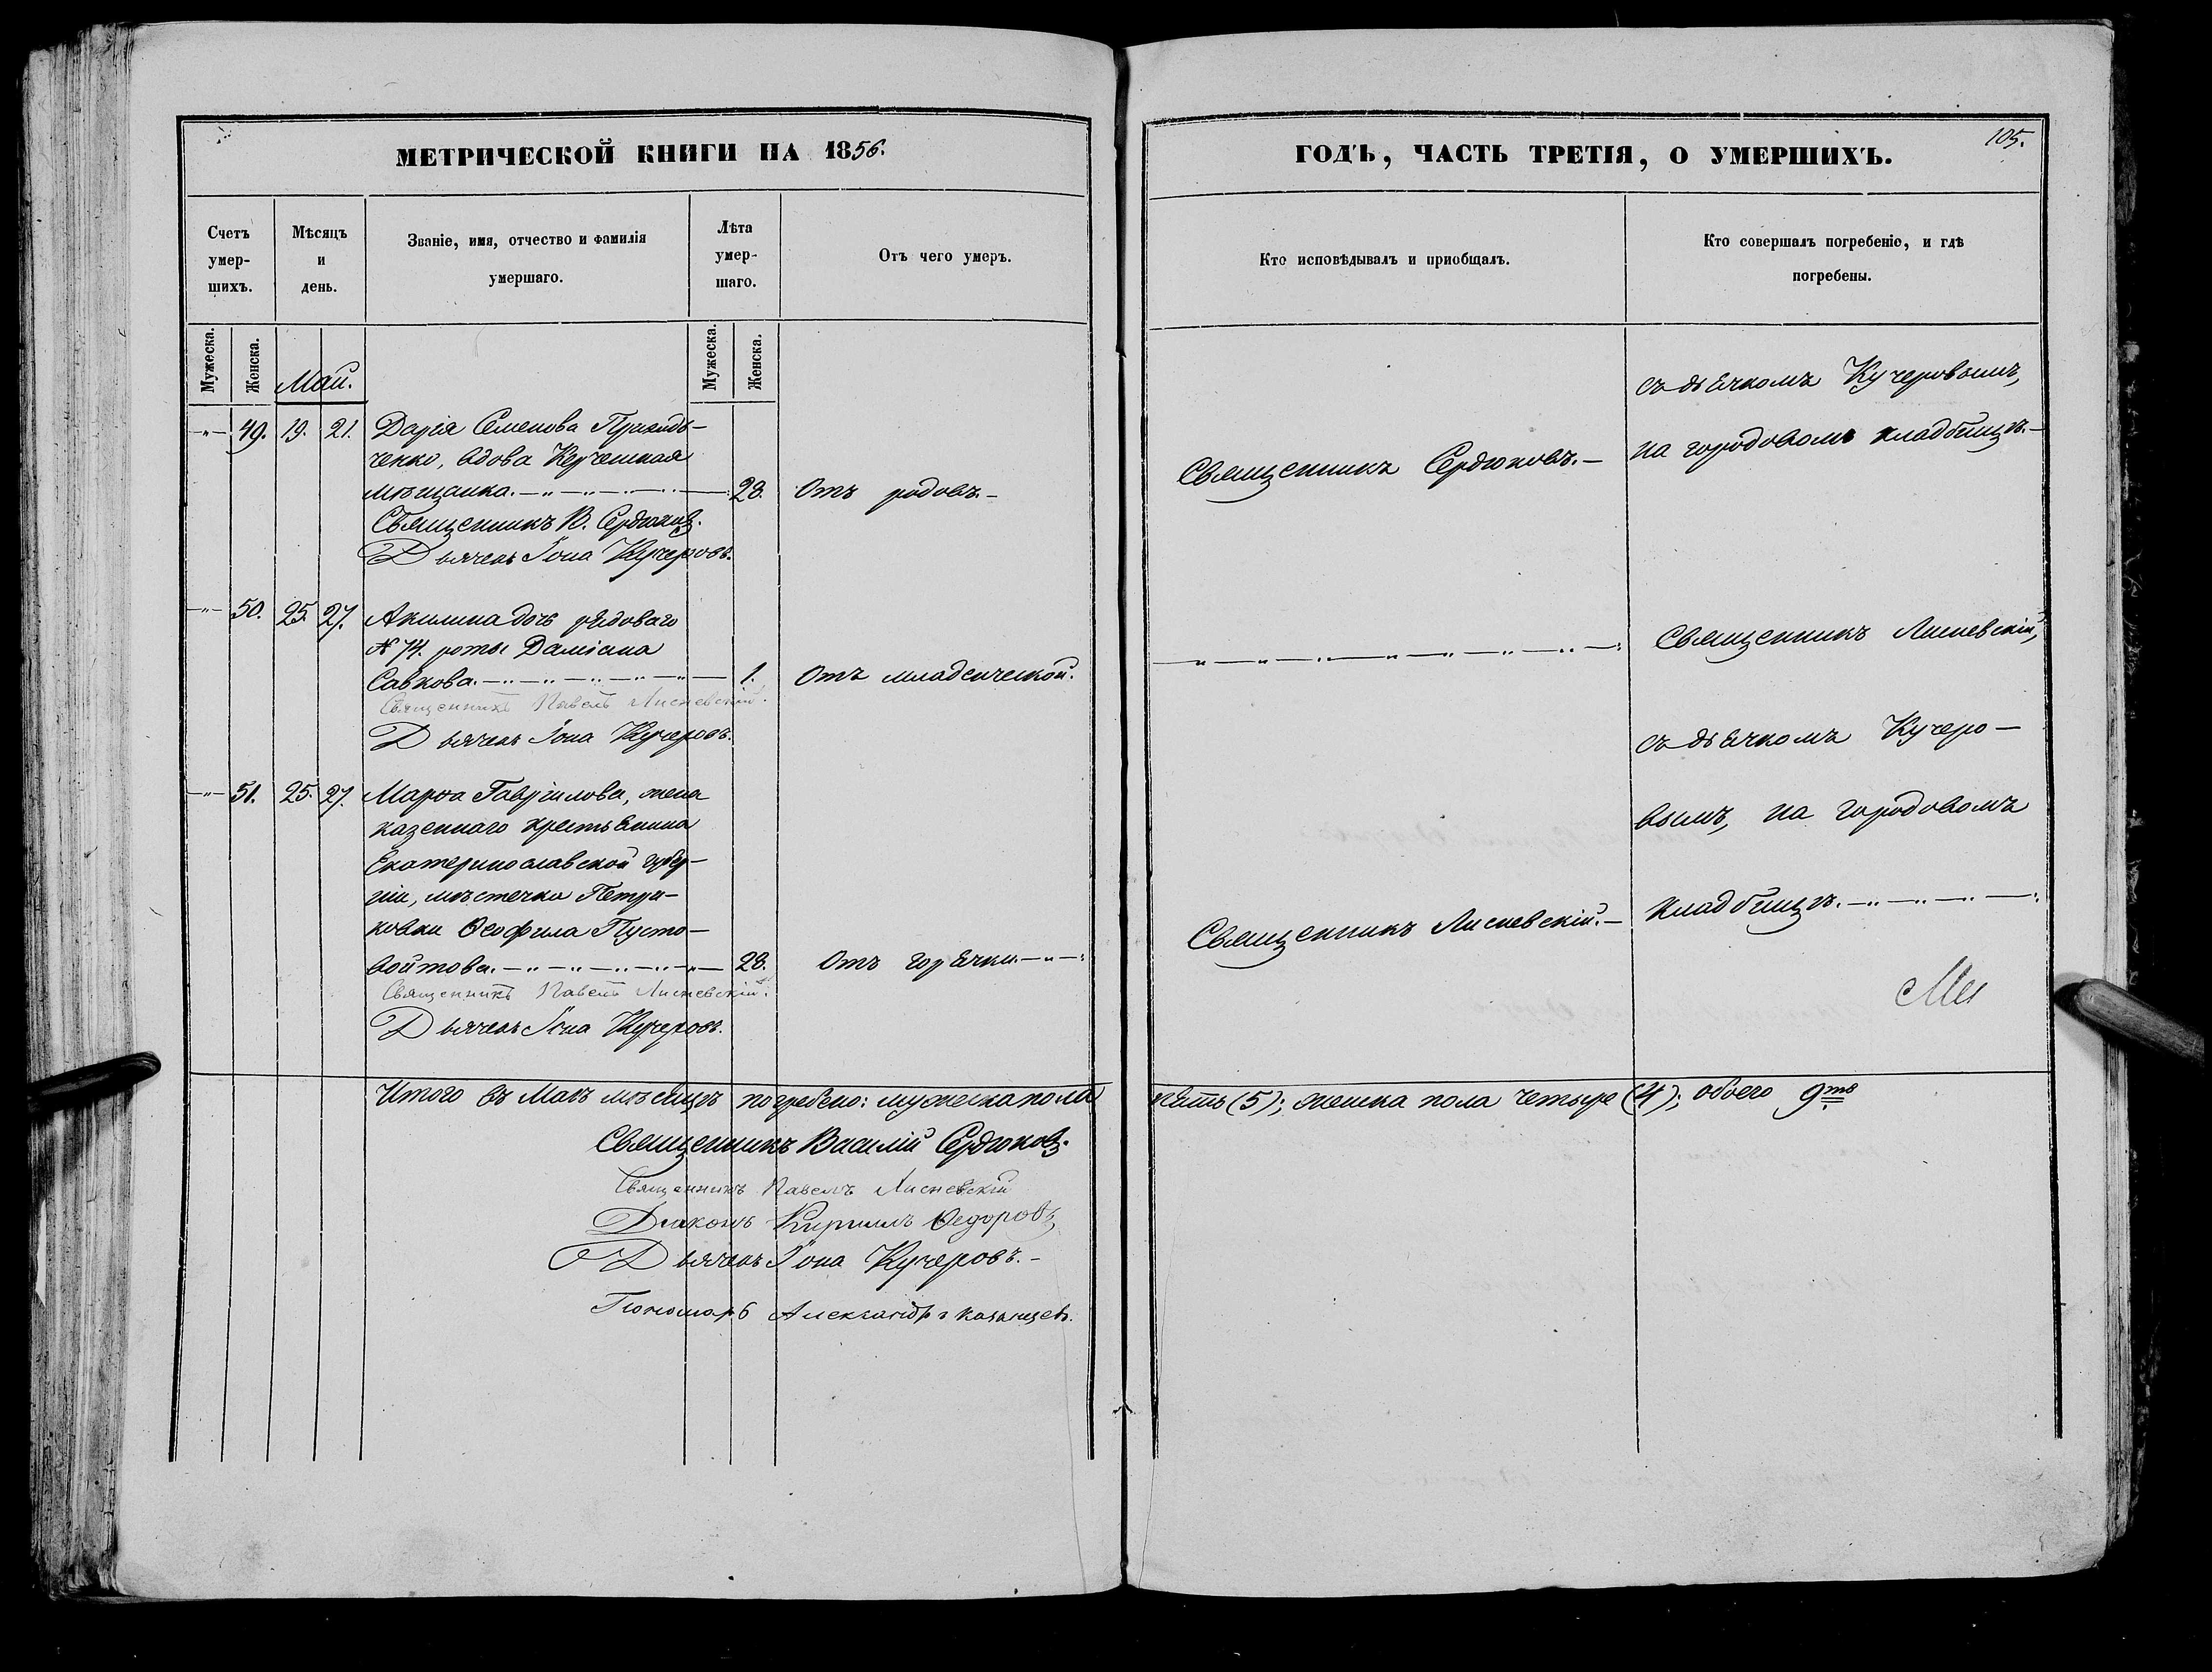 МЕТРИЧЕСКОЙ КНИГИ НА 1856.
Счетъ умер-шихъ.
Мѣсяцъ и день.
Званіе, имя, отчество и фамилія умершаго.
Лѣта умер-шаго.
Отъ чего умеръ.
Мужеска. Женска.
Май.
Мужеска. Женска.
—"— 49. 19. 21. Дарія Семенова Приходь-
ченко, вдова Керченская
мѣщанка.—"—"—"— 28. Отъ родовъ.—
Священникъ В. Сердюковъ.
Дьячекъ Іона Кучеровъ.
—"— 50. 25. 27. Акилина дочь рядоваго
№ 74. роты Даміана
Савкова.—"—"—"—"— 1. Отъ младенческой.
Священникъ Павелъ Лисневскій.
Дьячекъ Іона Кучеровъ.
—"— 51. 25. 27. Марѳа Гавріилова, жена
казеннаго крестьянина
Екатеринославской губер-
ніи, мѣстечка Петри-
ковки Ѳеофила Пусто-
войтова.—"—"—"—"— 28. Отъ горячки.—"—:
Священникъ Павелъ Лисневскій.
Дьячекъ Іона Кучеровъ.
Итого въ Маѣ мѣсяцѣ погребено: мужеска пола
Священникъ Василій Сердюковъ.
Священникъ Павелъ Лисневскій
Діаконъ Кириллъ Ѳедоровъ
Дьячекъ Іона Кучеровъ.—
Пономарь Александръ Казанцевъ.
105.
ГОДЪ, ЧАСТЬ ТРЕТІЯ, О УМЕРШИХЪ.
Кто исповѣдывалъ и пріобщалъ.
Кто совершалъ погребеніе, и гдѣ погребены.
съ дьячкомъ Кучеровымъ,
Священникъ Сердюковъ.— на городовомъ кладбищѣ.—
—"—"—"—"—"—"—: Священникъ Лисневскій,
съ дьячкомъ Кучеро-
вымъ, на городовомъ
Священникъ Лисневскій.— кладбищѣ.—"—"—"—:
пять (5); женска пола четыре (4); обоего 9ть